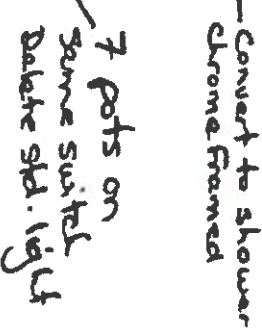 - Convert to shower
chrome framed
7 pots on
same switch
Delete std. light